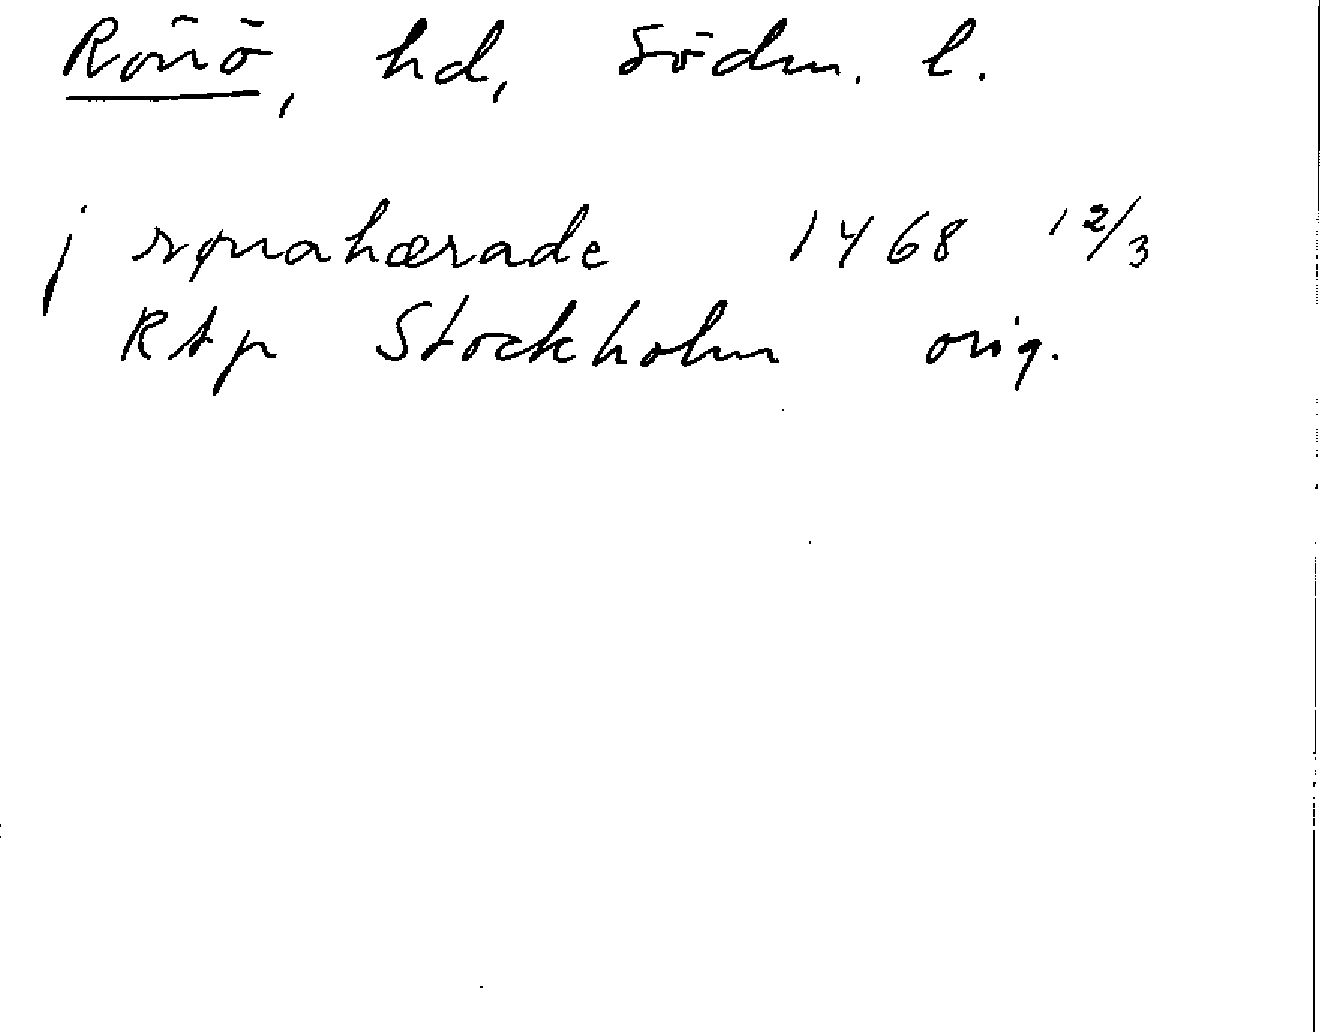 Rönö, hd, Södm. l.
j rønahærade 1468 12/3
RAp Stockholm orig.